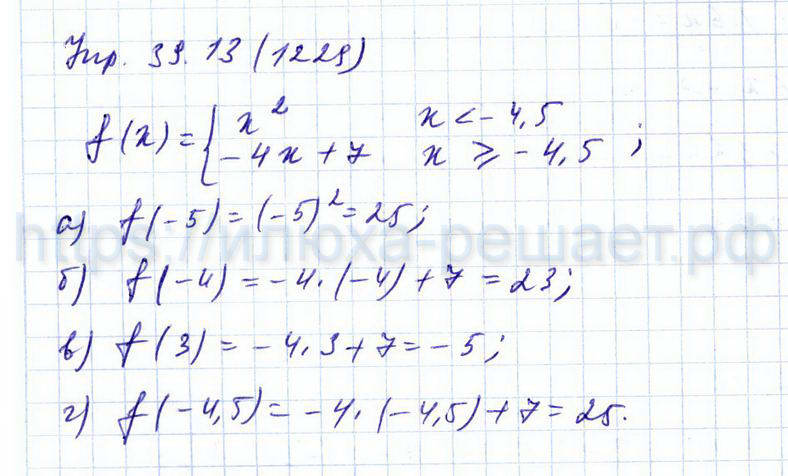 Упр. 39.13 (1229)
f(x) = { x² x < -4,5
-4x + 7 x ⩾ -4,5 ;
а) f(-5) = (-5)² = 25;
https://илюха-решает.рф
б) f(-4) = -4·(-4) + 7 = 23;
в) f(3) = -4·3 + 7 = -5;
г) f(-4,5) = -4·(-4,5) + 7 = 25.